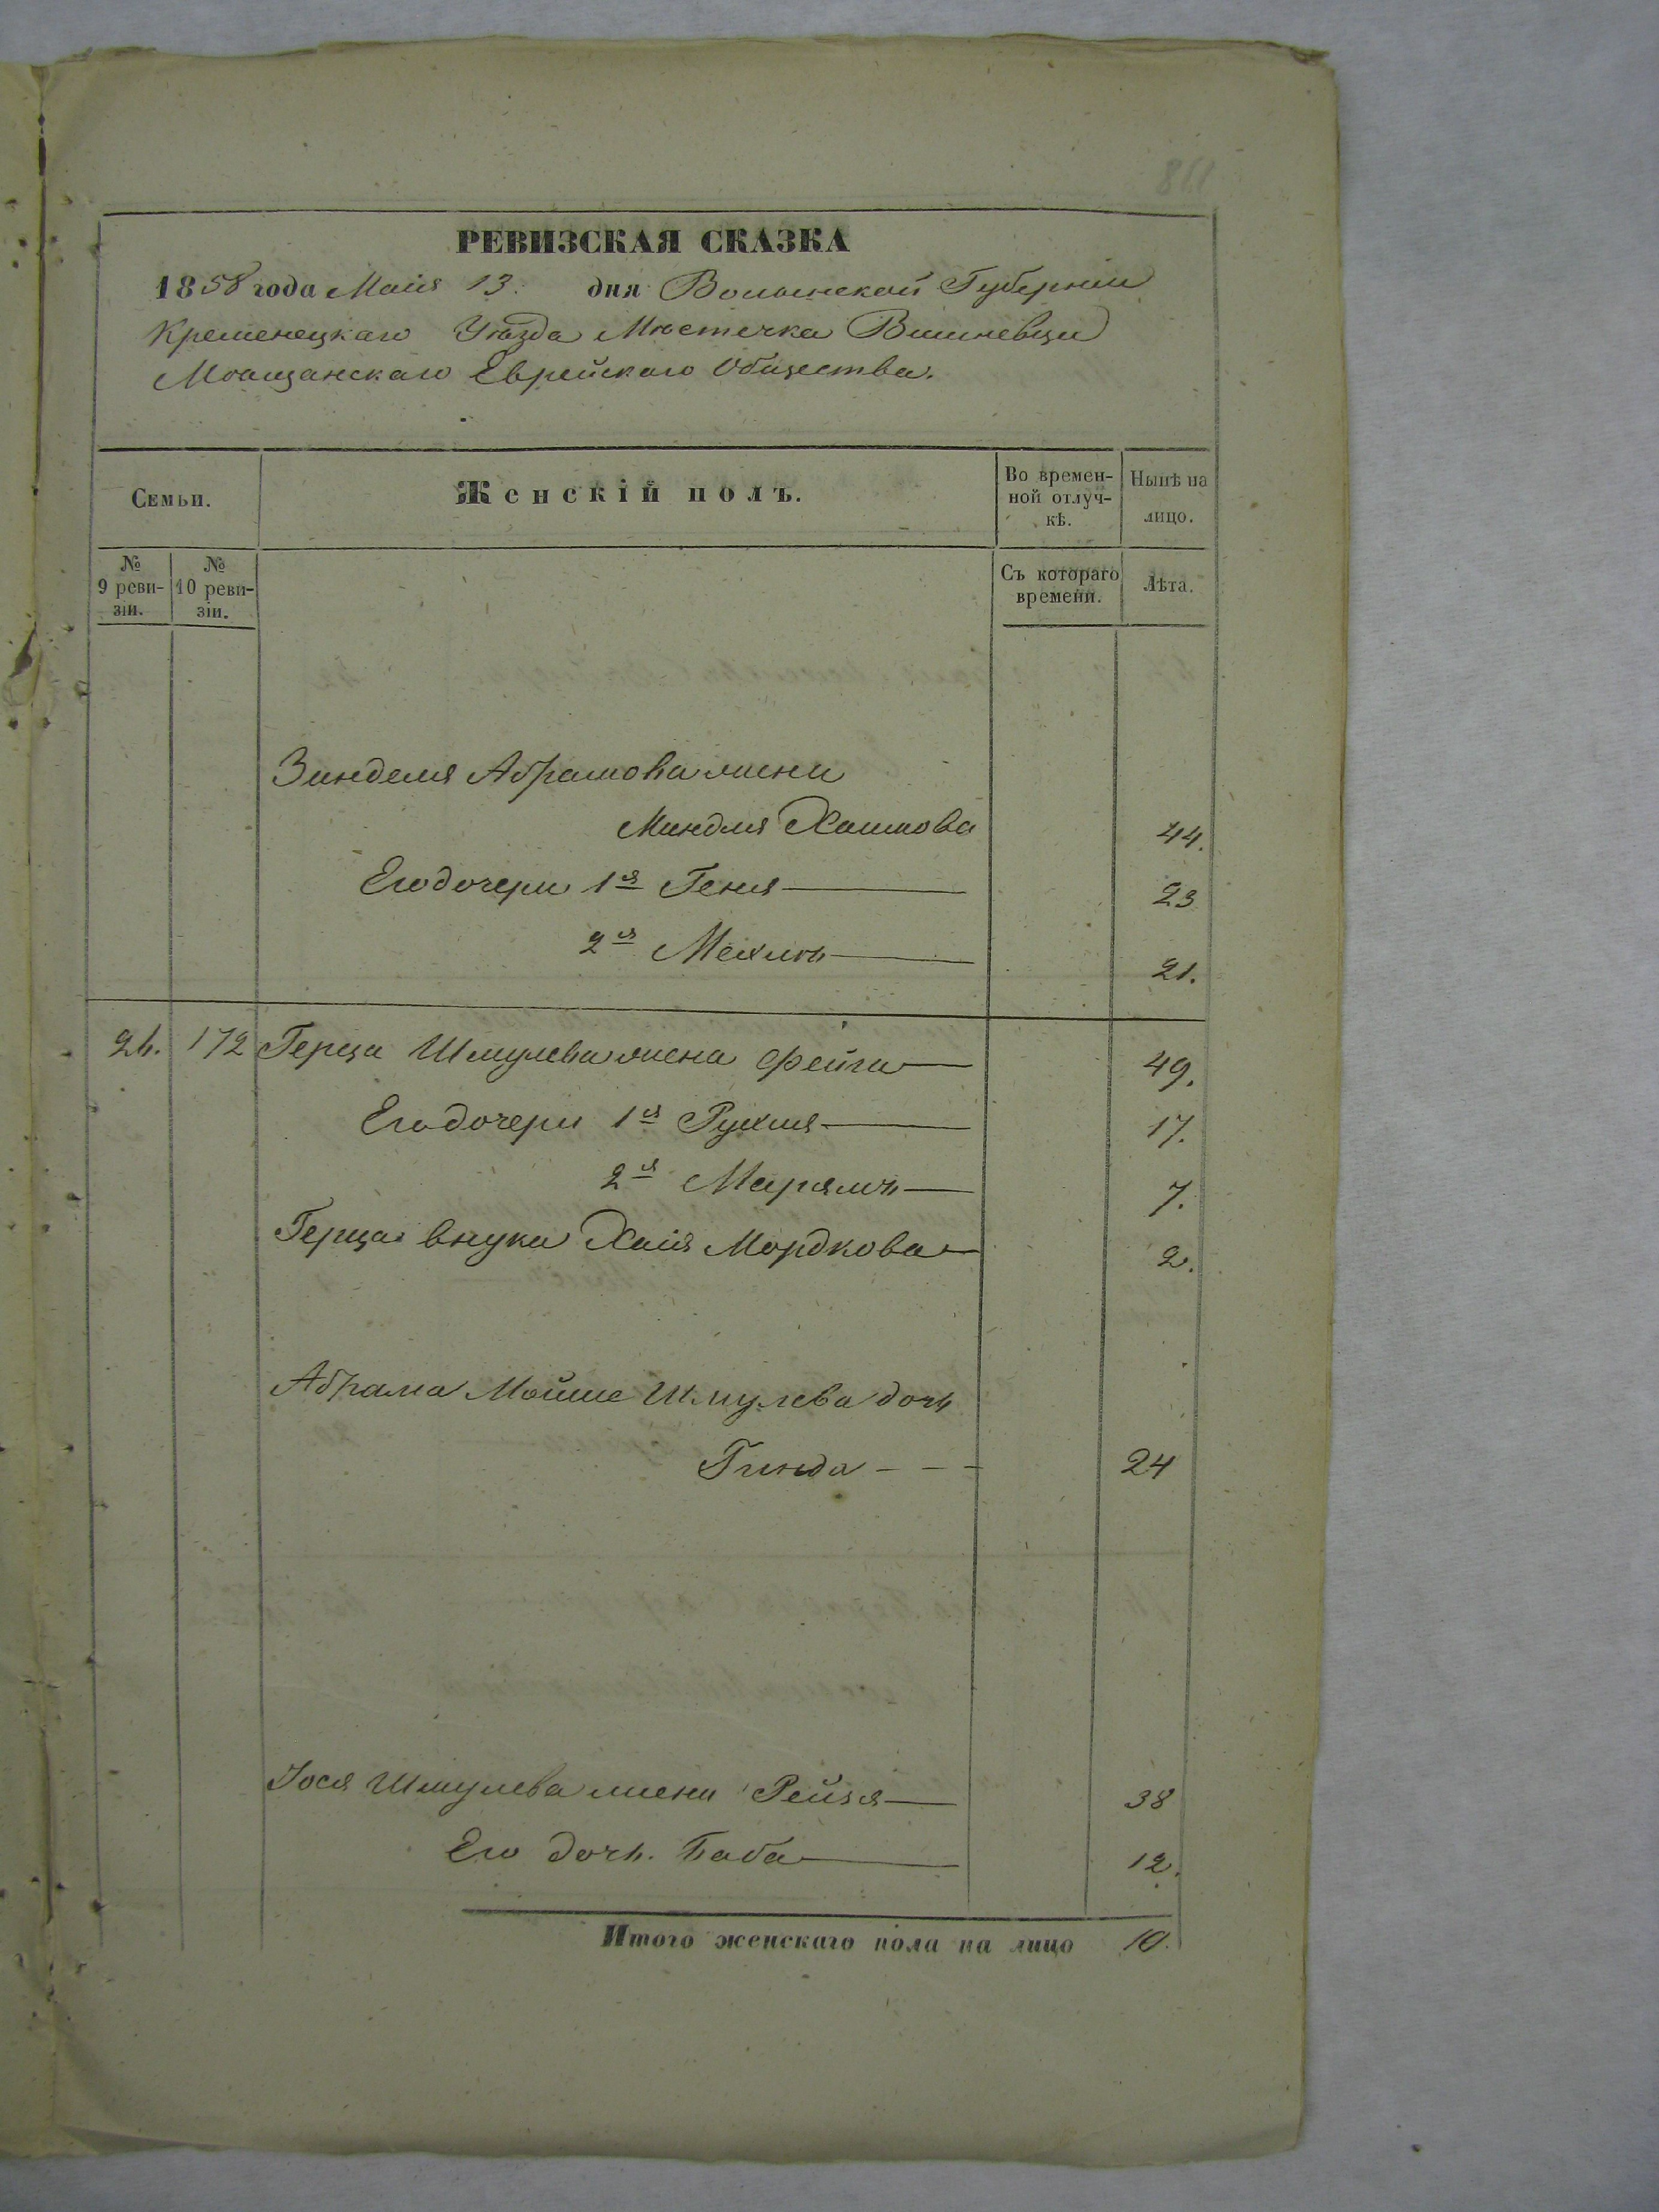 РЕВИЗСКАЯ СКАЗКА
1858 года Маія 13. дня Волынской Губерніи
Кременецкаго Уѣзда Мѣстечка Вишневца
Мѣщанскаго Еврейскаго Общества.
Семьи.
Женскій полъ.
Во времен-
ной отлуч-
кѣ.
Нынѣ на
лицо.
№
9 реви-
зіи.
№
10 реви-
зіи.
Съ котораго
времени.
Лѣта.
Зинделя Абрамова жена
Миндля Хаимова 44.
Его дочери 1я Геня 23
2я 21.
26. 172 Герца Шмулева жена Фейга 49.
Его дочери 1я Рухля 17.
2я Марямъ 7.
Герца внука Хаія Мордкова 2.
Абрама Мойше Шмулева дочь
Гинда - - - 24
Іося Шмулева жена Рейзя 38
Его дочь. Баба 12.
Итого женскаго пола на лицо 10.